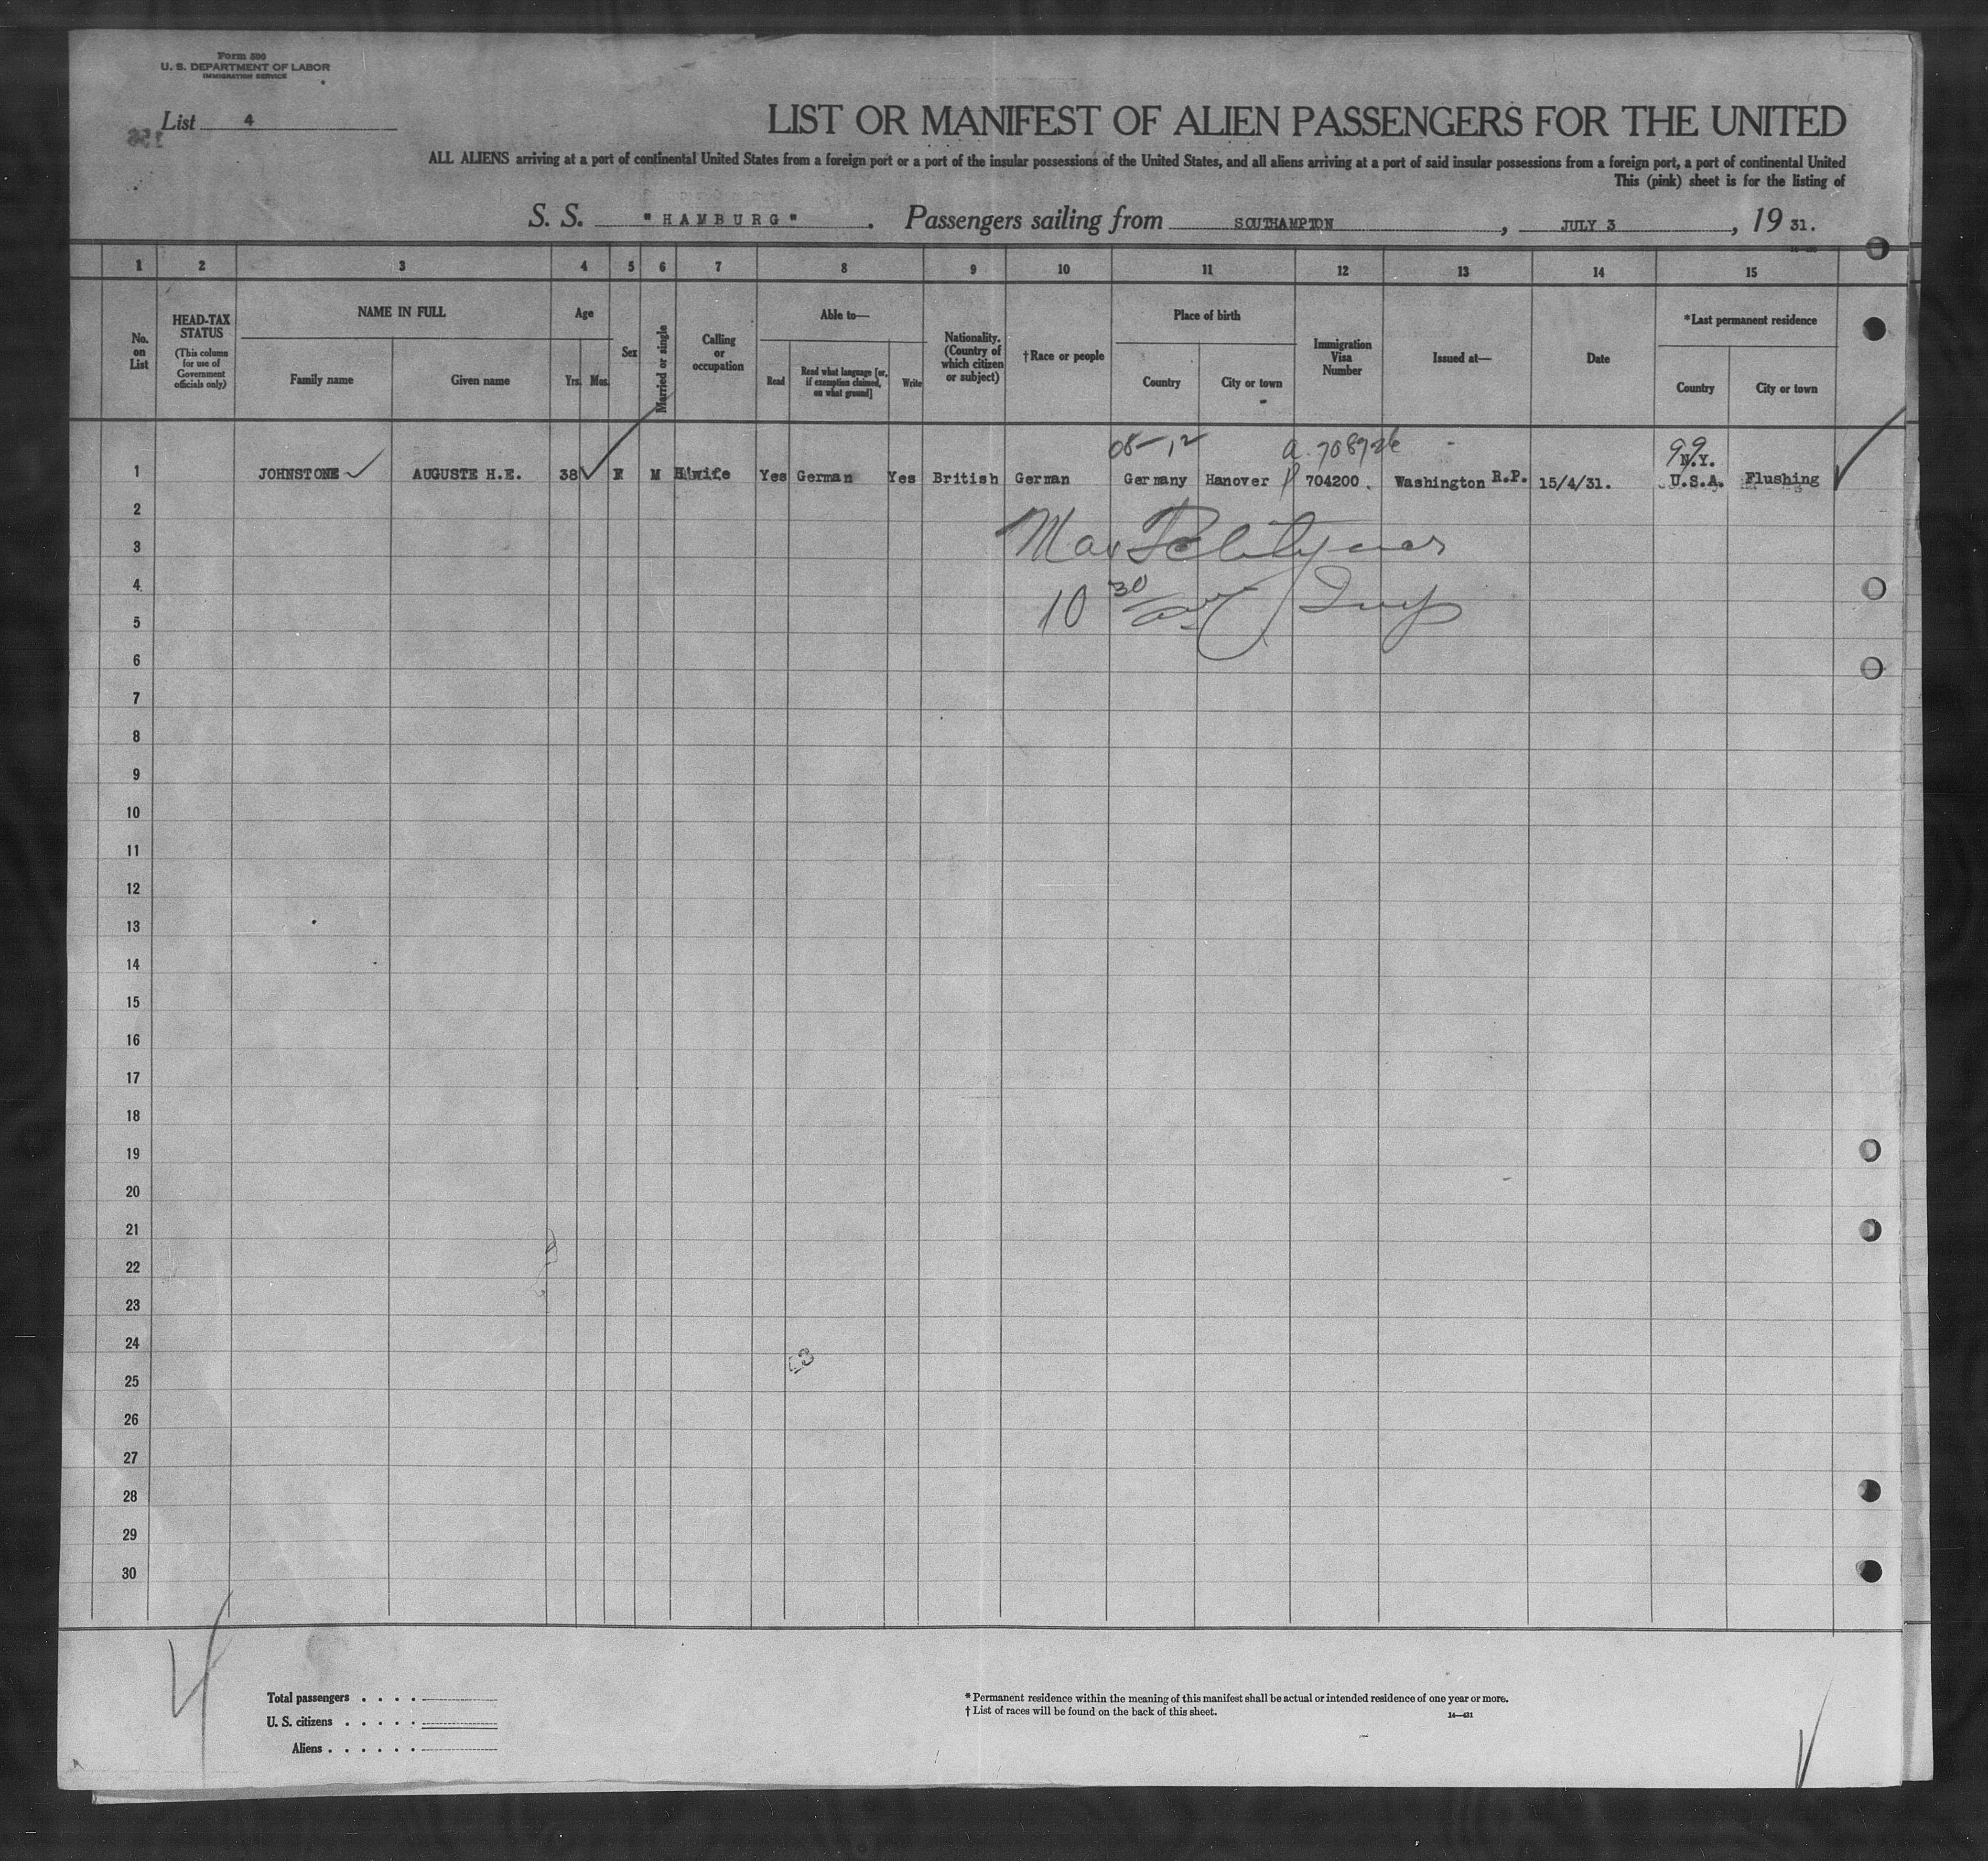 Form 500
U. S. DEPARTMENT OF LABOR
IMMIGRATION SERVICE
List 4
LIST OR MANIFEST OF ALIEN PASSENGERS FOR THE UNITED
ALL ALIENS arriving at a port of continental United States from a foreign port or a port of the insular possessions of the United States, and all aliens arriving at a port of said insular possessions from a foreign port, a port of continental United
This (pink) sheet is for the listing of
S. S. "HAMBURG". Passengers sailing from SOUTHAMPTON, JULY 3, 19 31.
1 2 3 4 5 6 7 8 9 10 11 12 13 14 15
No. on List
HEAD-TAX STATUS
(This column for use of Government officials only)
NAME IN FULL
Family name Given name
Age
Yrs. Mos.
Sex
Married or single
Calling or occupation
Able to—
Read
Read what language [or, if exemption claimed, on what ground]
Write
Nationality. (Country of which citizen or subject)
†Race or people
Place of birth
Country City or town
Immigration Visa Number
Issued at—
Date
*Last permanent residence
Country City or town
99
N.Y.
1 JOHNSTONE AUGUSTE H.E. 38 F M H'wife Yes German Yes British German Germany Hanover 704200. Washington R.P. 15/4/31. U.S.A. Flushing
2
3
4
10 30
5
6
7
8
9
10
11
12
13
14
15
16
17
18
19
20
21
22
23
24
25
26
27
28
29
30
Total passengers . . . .
U. S. citizens . . . . .
Aliens . . . . . .
* Permanent residence within the meaning of this manifest shall be actual or intended residence of one year or more.
† List of races will be found on the back of this sheet.
14—431